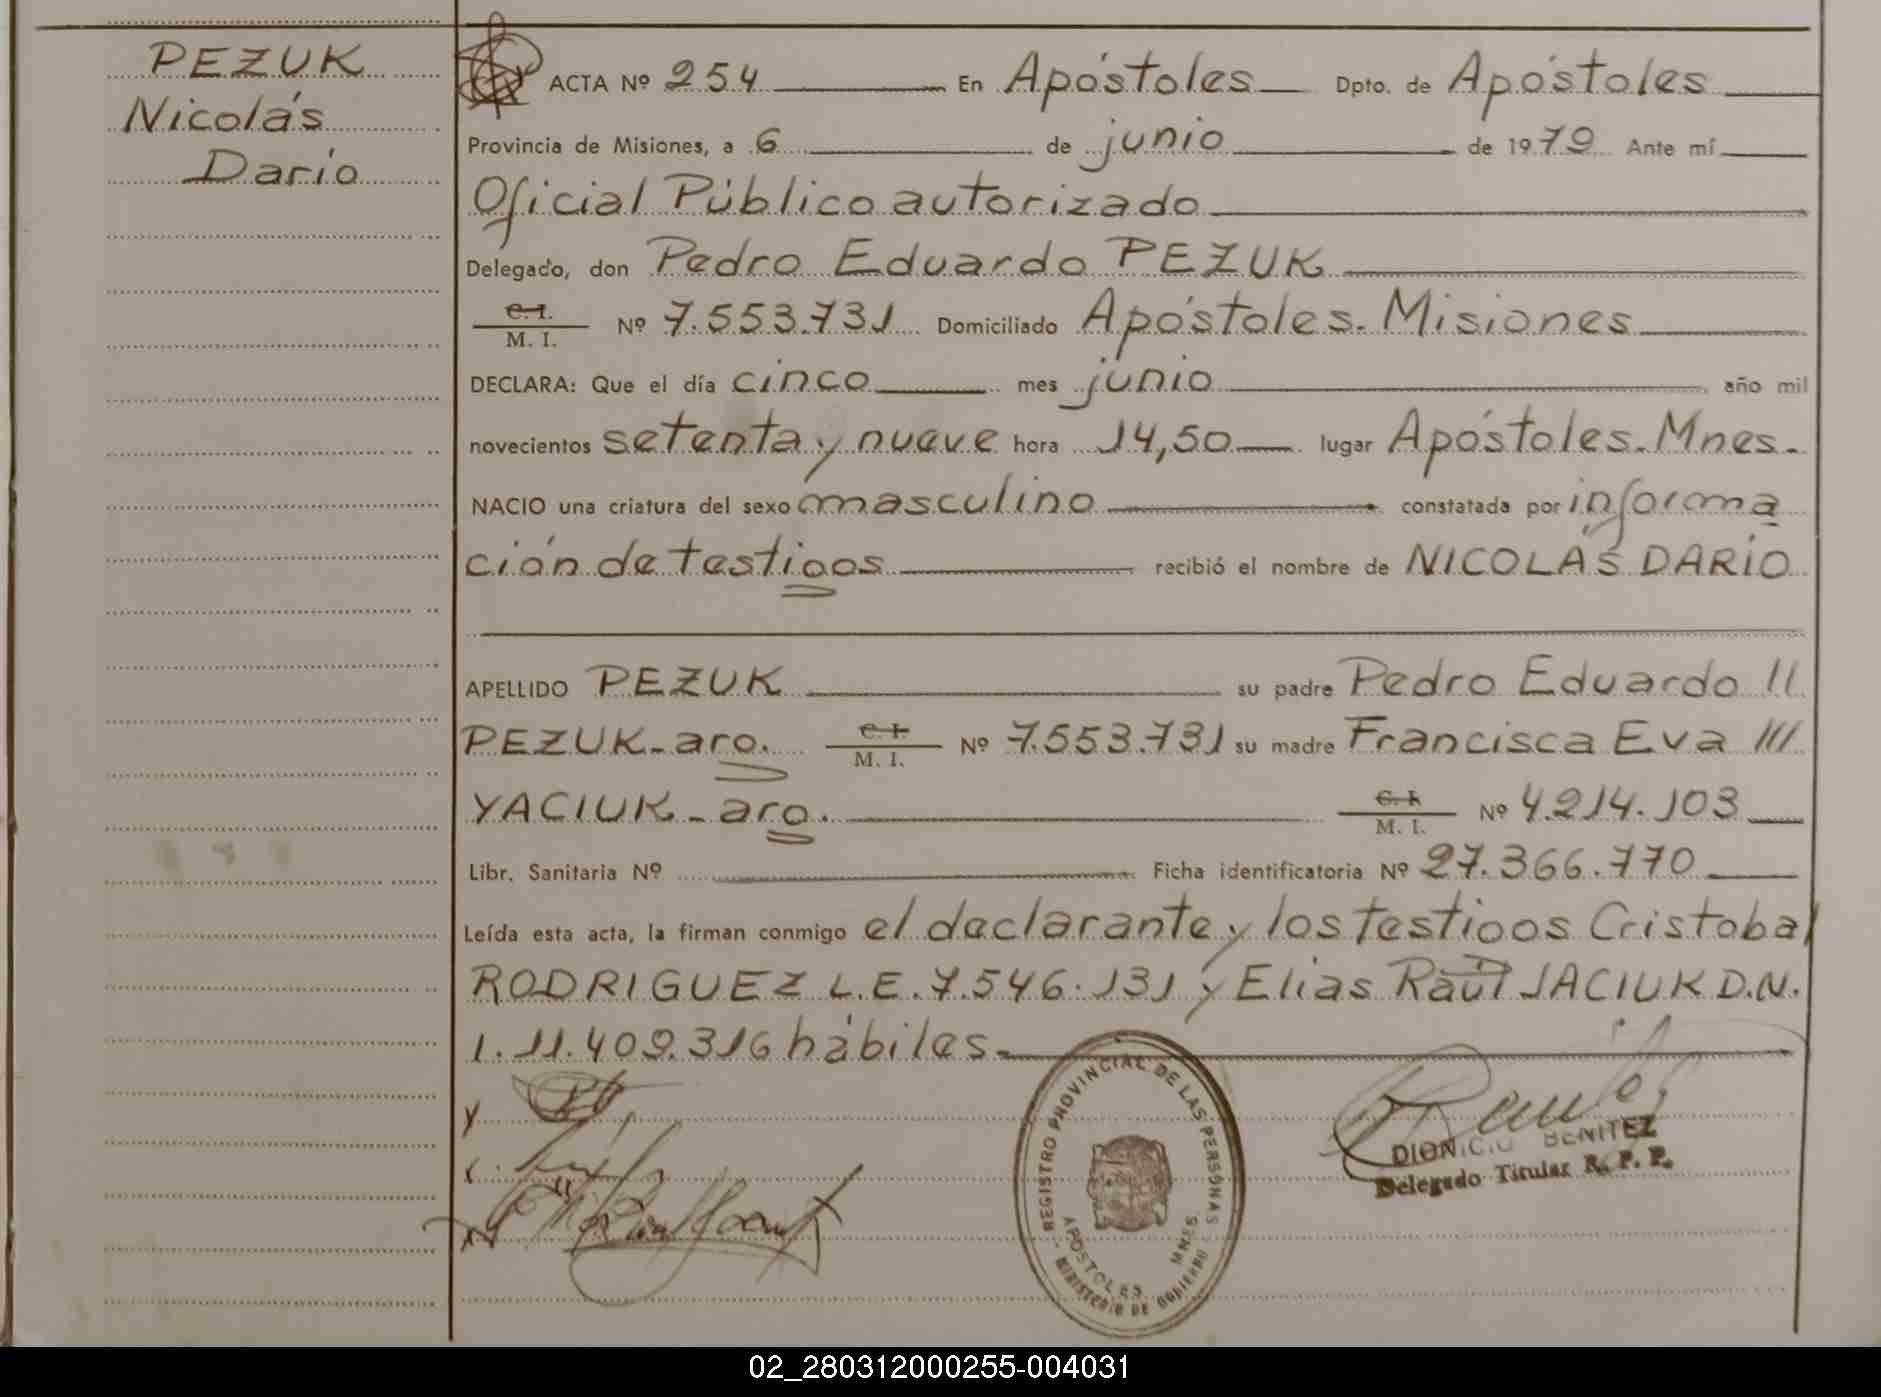 PEZUK
Nicolás
Darío
ACTA Nº 254 En Apóstoles Dpto. de Apóstoles
Provincia de Misiones, a 6 de junio de 1979 Ante mí
Oficial Público autorizado
Delegado, don Pedro Eduardo PEZUK
C. I.
M. I. Nº 7.553.731 Domiciliado Apóstoles. Misiones
DECLARA: Que el día cinco mes junio año mil
novecientos setenta y nueve hora 14,50 lugar Apóstoles. Mnes.
NACIO una criatura del sexo masculino constatada por informa
ción de testigos recibió el nombre de NICOLÁS DARÍO
APELLIDO PEZUK su padre Pedro Eduardo II
PEZUK-arg. C. I. M. I. Nº 7.553.731 su madre Francisca Eva III
YACIUK-arg. C. I. M. I. Nº 4.214.103
Libr. Sanitaria Nº Ficha identificatoria Nº 27.366.770
Leída esta acta, la firman conmigo el declarante y los testigos Cristobal
RODRIGUEZ L.E. 7.546.131 y Elías Raúl JACIUK D.N.
I. 11.409.316 hábiles.
REGISTRO PROVINCIAL DE LAS PERSONAS
APOSTOLES MNES.
MINISTERIO DE GOBIERNO
DIONICIO BENITEZ
Delegado Titular R. P. P.
02_280312000255-004031